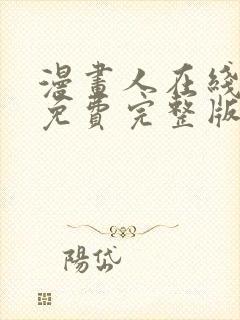 漫畫人在綫
免費完整版
陽岱